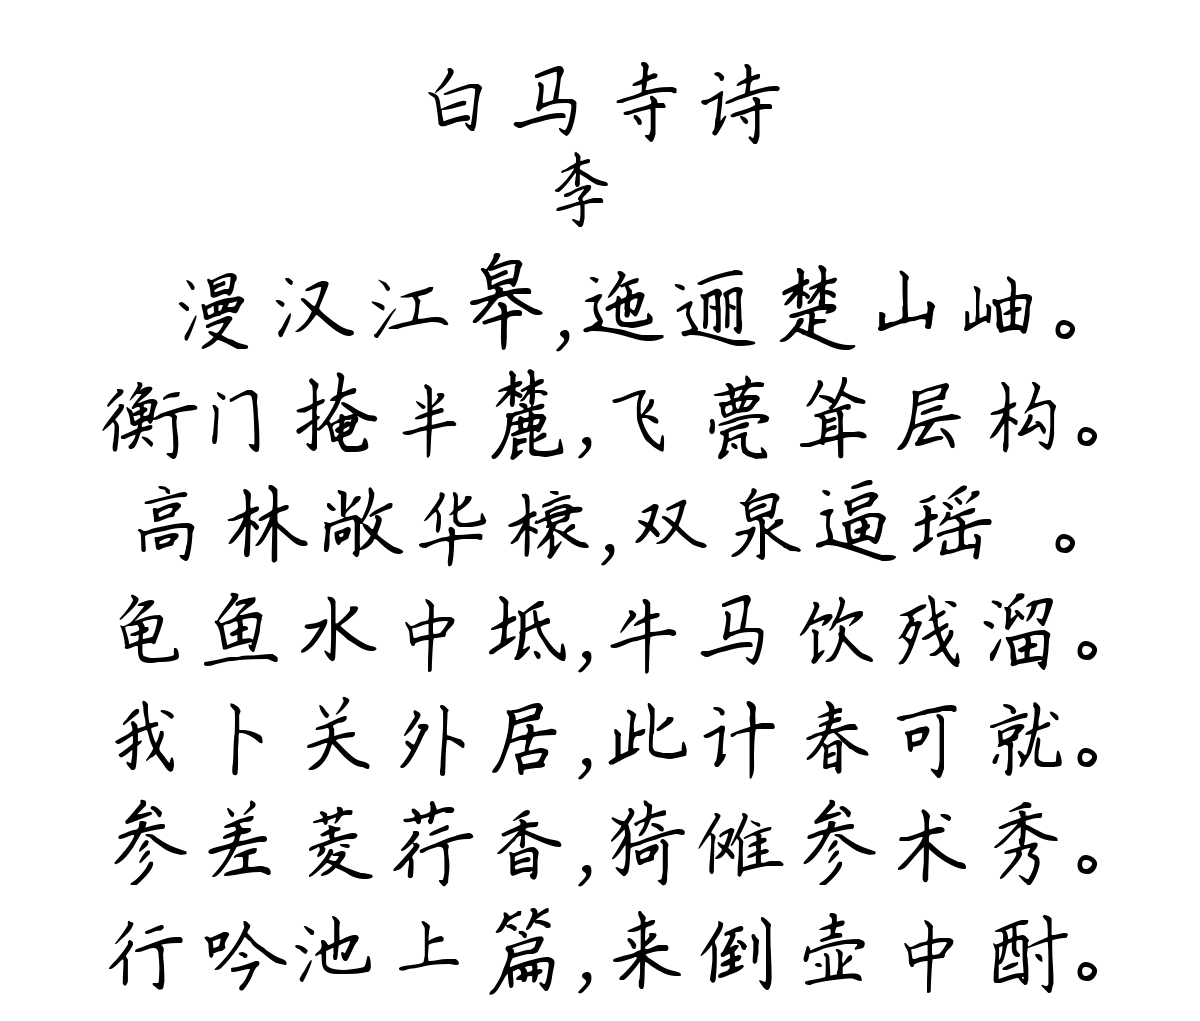 白马寺诗
李
漫汉江皋,迤逦楚山岫。
衡门掩半麓,飞甍耸层构。
高林敞华榱,双泉逼瑶 。
龟鱼水中坻,牛马饮残溜。
我卜关外居,此计春可就。
参差菱荇香,猗傩参术秀。
行吟池上篇,来倒壶中酎。